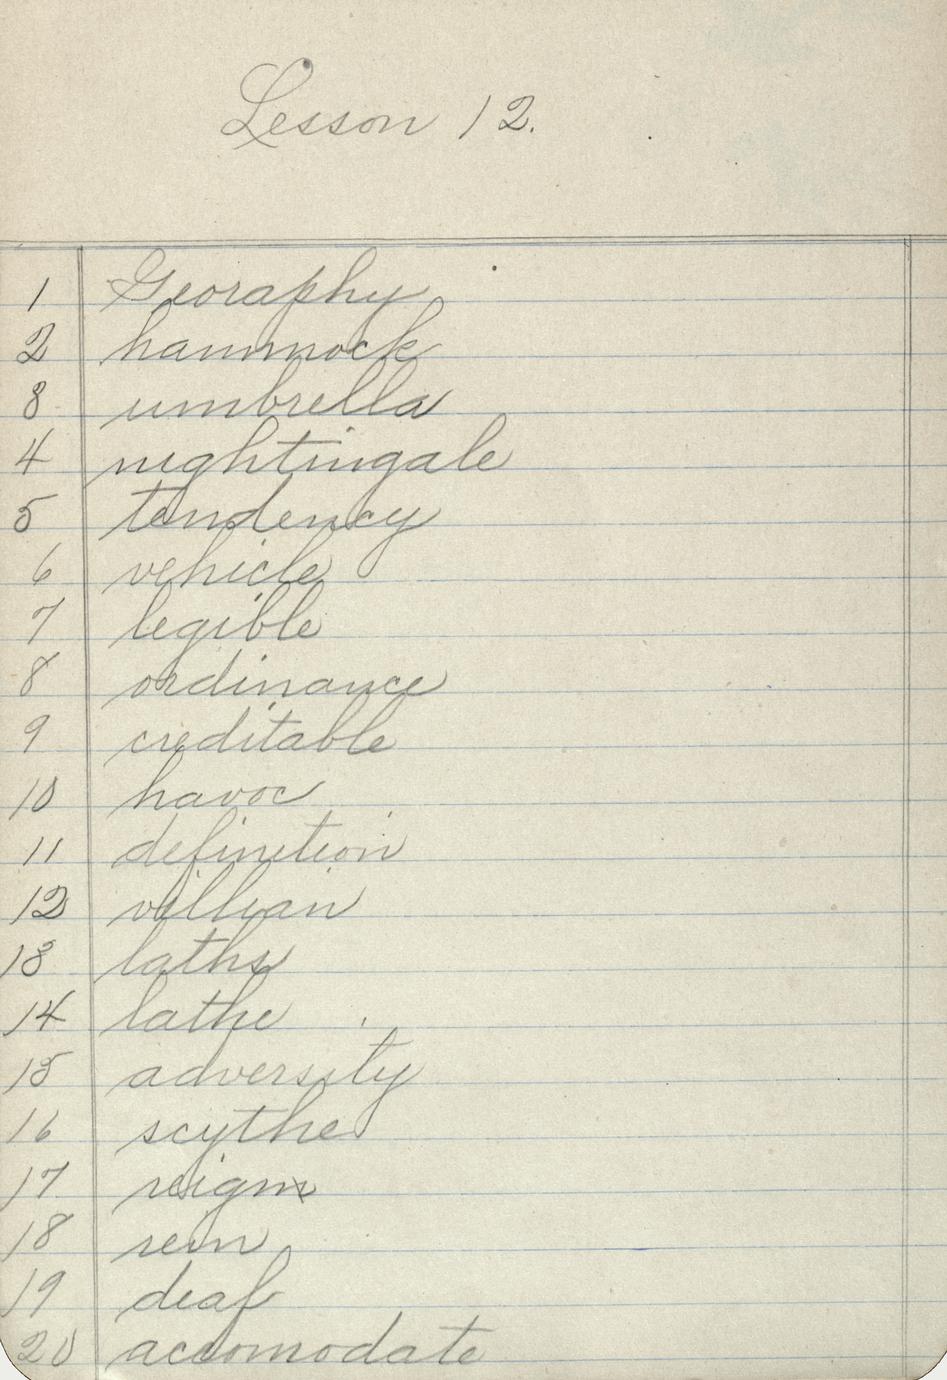 Lesson 12.
1 Georaphy
2 hammock
3 umbrella
4 nightingale
5 tendency
6 vehicle
7 legible
8 ordinance
9 creditable
10 havoc
11 definetion
12 villian
13 laths
14 lathe
15 adversity
16 scythe
17 reign
18 rein
19 deaf
20 accomodate